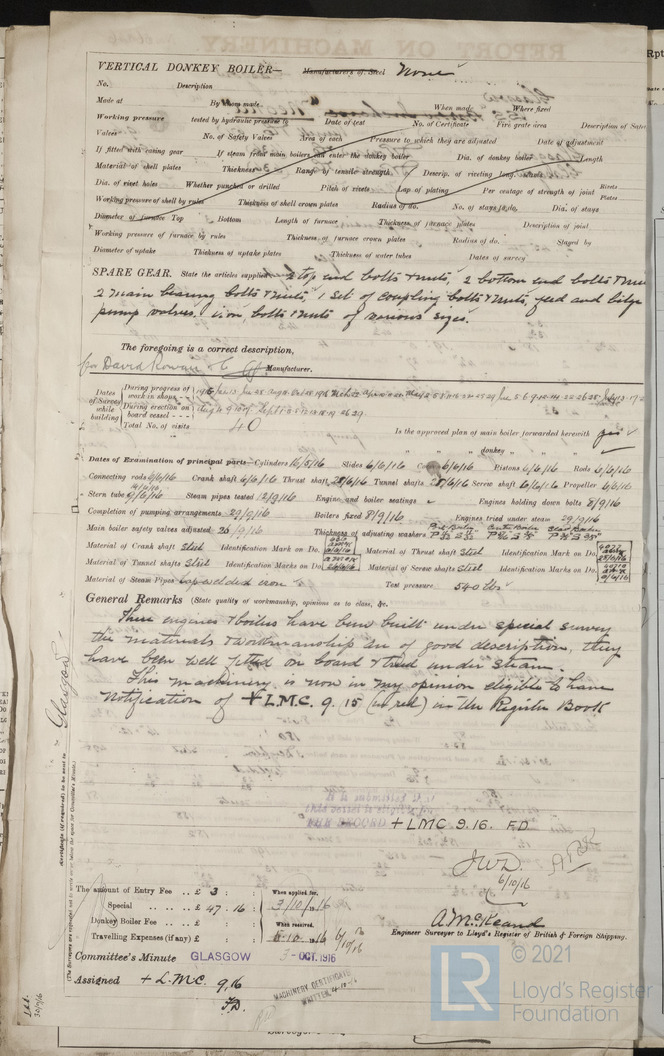 VERTICAL DONKEY BOILER— Manufacturers of Steel None
No. Description
Made at By whom made When made Where fixed
Working pressure tested by hydraulic pressure to Date of test No. of Certificate Fire grate area Description of
Valves No. of Safety Valves Area of each Pressure to which they are adjusted Date of adjustment
If fitted with easing gear If steam from main boilers can enter the donkey boiler Dia. of donkey boiler Length
Material of shell plates Thickness Range of tensile strength Descrip. of riveting long. seams
Dia. of rivet holes Whether punched or drilled Pitch of rivets Lap of plating Per centage of strength of joint Rivets Plates
Working pressure of shell by rules Thickness of shell crown plates Radius of do. No. of stays to do. Dia. of stays
Diameter of furnace Top Bottom Length of furnace Thickness of furnace plates Description of joint
Working pressure of furnace by rules Thickness of furnace crown plates Radius of do. Stayed by
Diameter of uptake Thickness of uptake plates Thickness of water tubes Dates of survey
SPARE GEAR. State the articles supplied:— 2 top end bolts & nuts, 2 bottom end bolts &
2 main bearing bolts & nuts, 1 set of coupling bolts & nuts, feed and bilge
pump valves. iron, bolts & nuts of various sizes.
The foregoing is a correct description,
for David Rowan & Co Manufacturer.
Dates of Survey while building
During progress of work in shops - -
During erection on board vessel - - -
Total No. of visits 40
Is the approved plan of main boiler forwarded herewith yes
" " " donkey " " "
Dates of Examination of principal parts—Cylinders 16/5/16 Slides 6/6/16 Covers 6/6/16 Pistons 6/6/16 Rods 6/6/16
Connecting rods 6/6/16 Crank shaft 6/6/16 Thrust shaft 28/6/16 Tunnel shafts 28/6/16 Screw shaft 6/6/16 Propeller 6/6/16
Stern tube 6/6/16 Steam pipes tested 12/9/16 Engine and boiler seatings Engines holding down bolts 8/9/16
Completion of pumping arrangements 29/9/16 Boilers fixed 8/9/16 Engines tried under steam 29/9/16
Main boiler safety valves adjusted 26/9/16 Thickness of adjusting washers
Material of Crank shaft Steel Identification Mark on Do. Material of Thrust shaft Steel Identification Mark on Do.
Material of Tunnel shafts Steel Identification Marks on Do. Material of Screw shafts Steel Identification Marks on Do.
Material of Steam Pipes Lap welded iron Test pressure 540 lbs
General Remarks (State quality of workmanship, opinions as to class, &c.
These engines & boilers have been built under special survey
the materials & workmanship are of good description, they
have been well fitted on board & tried under steam.
This machinery is now in my opinion eligible to have
notification of + L.M.C. 9. 15 (in red) in the Register Book
Glasgow
Certificate (if required) to be sent to
(The Surveyors are requested not to write on or below the space for Committee's Minute.)
It is submitted that
this vessel is eligible for
THE RECORD + LMC 9.16. F.D.
J.W.D.
6/10/16
The amount of Entry Fee .. £ 3 : : When applied for,
Special .. .. .. £ 47 . 16 : 3/10/1916
Donkey Boiler Fee .. .. £ : : When received,
Travelling Expenses (if any) £ : : 6.10.1916 6/10/16
A. McKeand
Engineer Surveyor to Lloyd's Register of British & Foreign Shipping.
Committee's Minute GLASGOW 3-OCT. 1916
Assigned + L.M.C. 9.16
F.D.
MACHINERY CERTIFICATE
WRITTEN 4-10-16
© 2021
LR
Lloyd's Register
Foundation